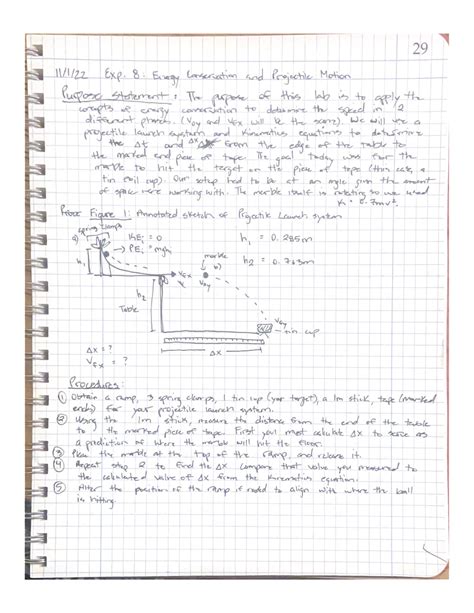 29
11/1/22 Exp. 8: Energy Conservation and Projectile Motion
Purpose statement: The purpose of this lab is to apply the
concepts of energy conservation to determine the speed in 2
different phases. (Voy and Vfx will be the same). We will use a
projectile launch system and Kinematics equations to determine
the Δt and Δx from the edge of the table to
the marked end piece of tape. The goal today was for the
marble to hit the target on the piece of tape (this case, a
tin cup). Our setup had to be at an angle given the amount
of space were working with. The marble itself is rotating so we used
Figure 1: Annotated sketch of Projectile Launch system
spring clamps
KEi = 0
PEi = mgh1
h1 = 0.285m
h2 = 0.763m
h1
Vfx
marble
h2
Table
Vfy
tin cup
Δx
Δx = ?
Vfx = ?
Procedures:
① Obtain a ramp, 3 spring clamps, 1 tin cup (your target), a 1m stick, tape (marked
ends) for your projectile launch system.
② Using the 1m stick, measure the distance from the end of the table
to the marked piece of tape. First you must calculate Δx to serve as
a prediction of where the marble will hit the floor.
③ Place the marble at the top of the ramp, and release it.
④ Repeat step 2 to find the Δx compare that value you measured to
the calculated value of Δx from the Kinematics equation.
⑤ Alter the position of the ramp if need to align with where the ball
is hitting.